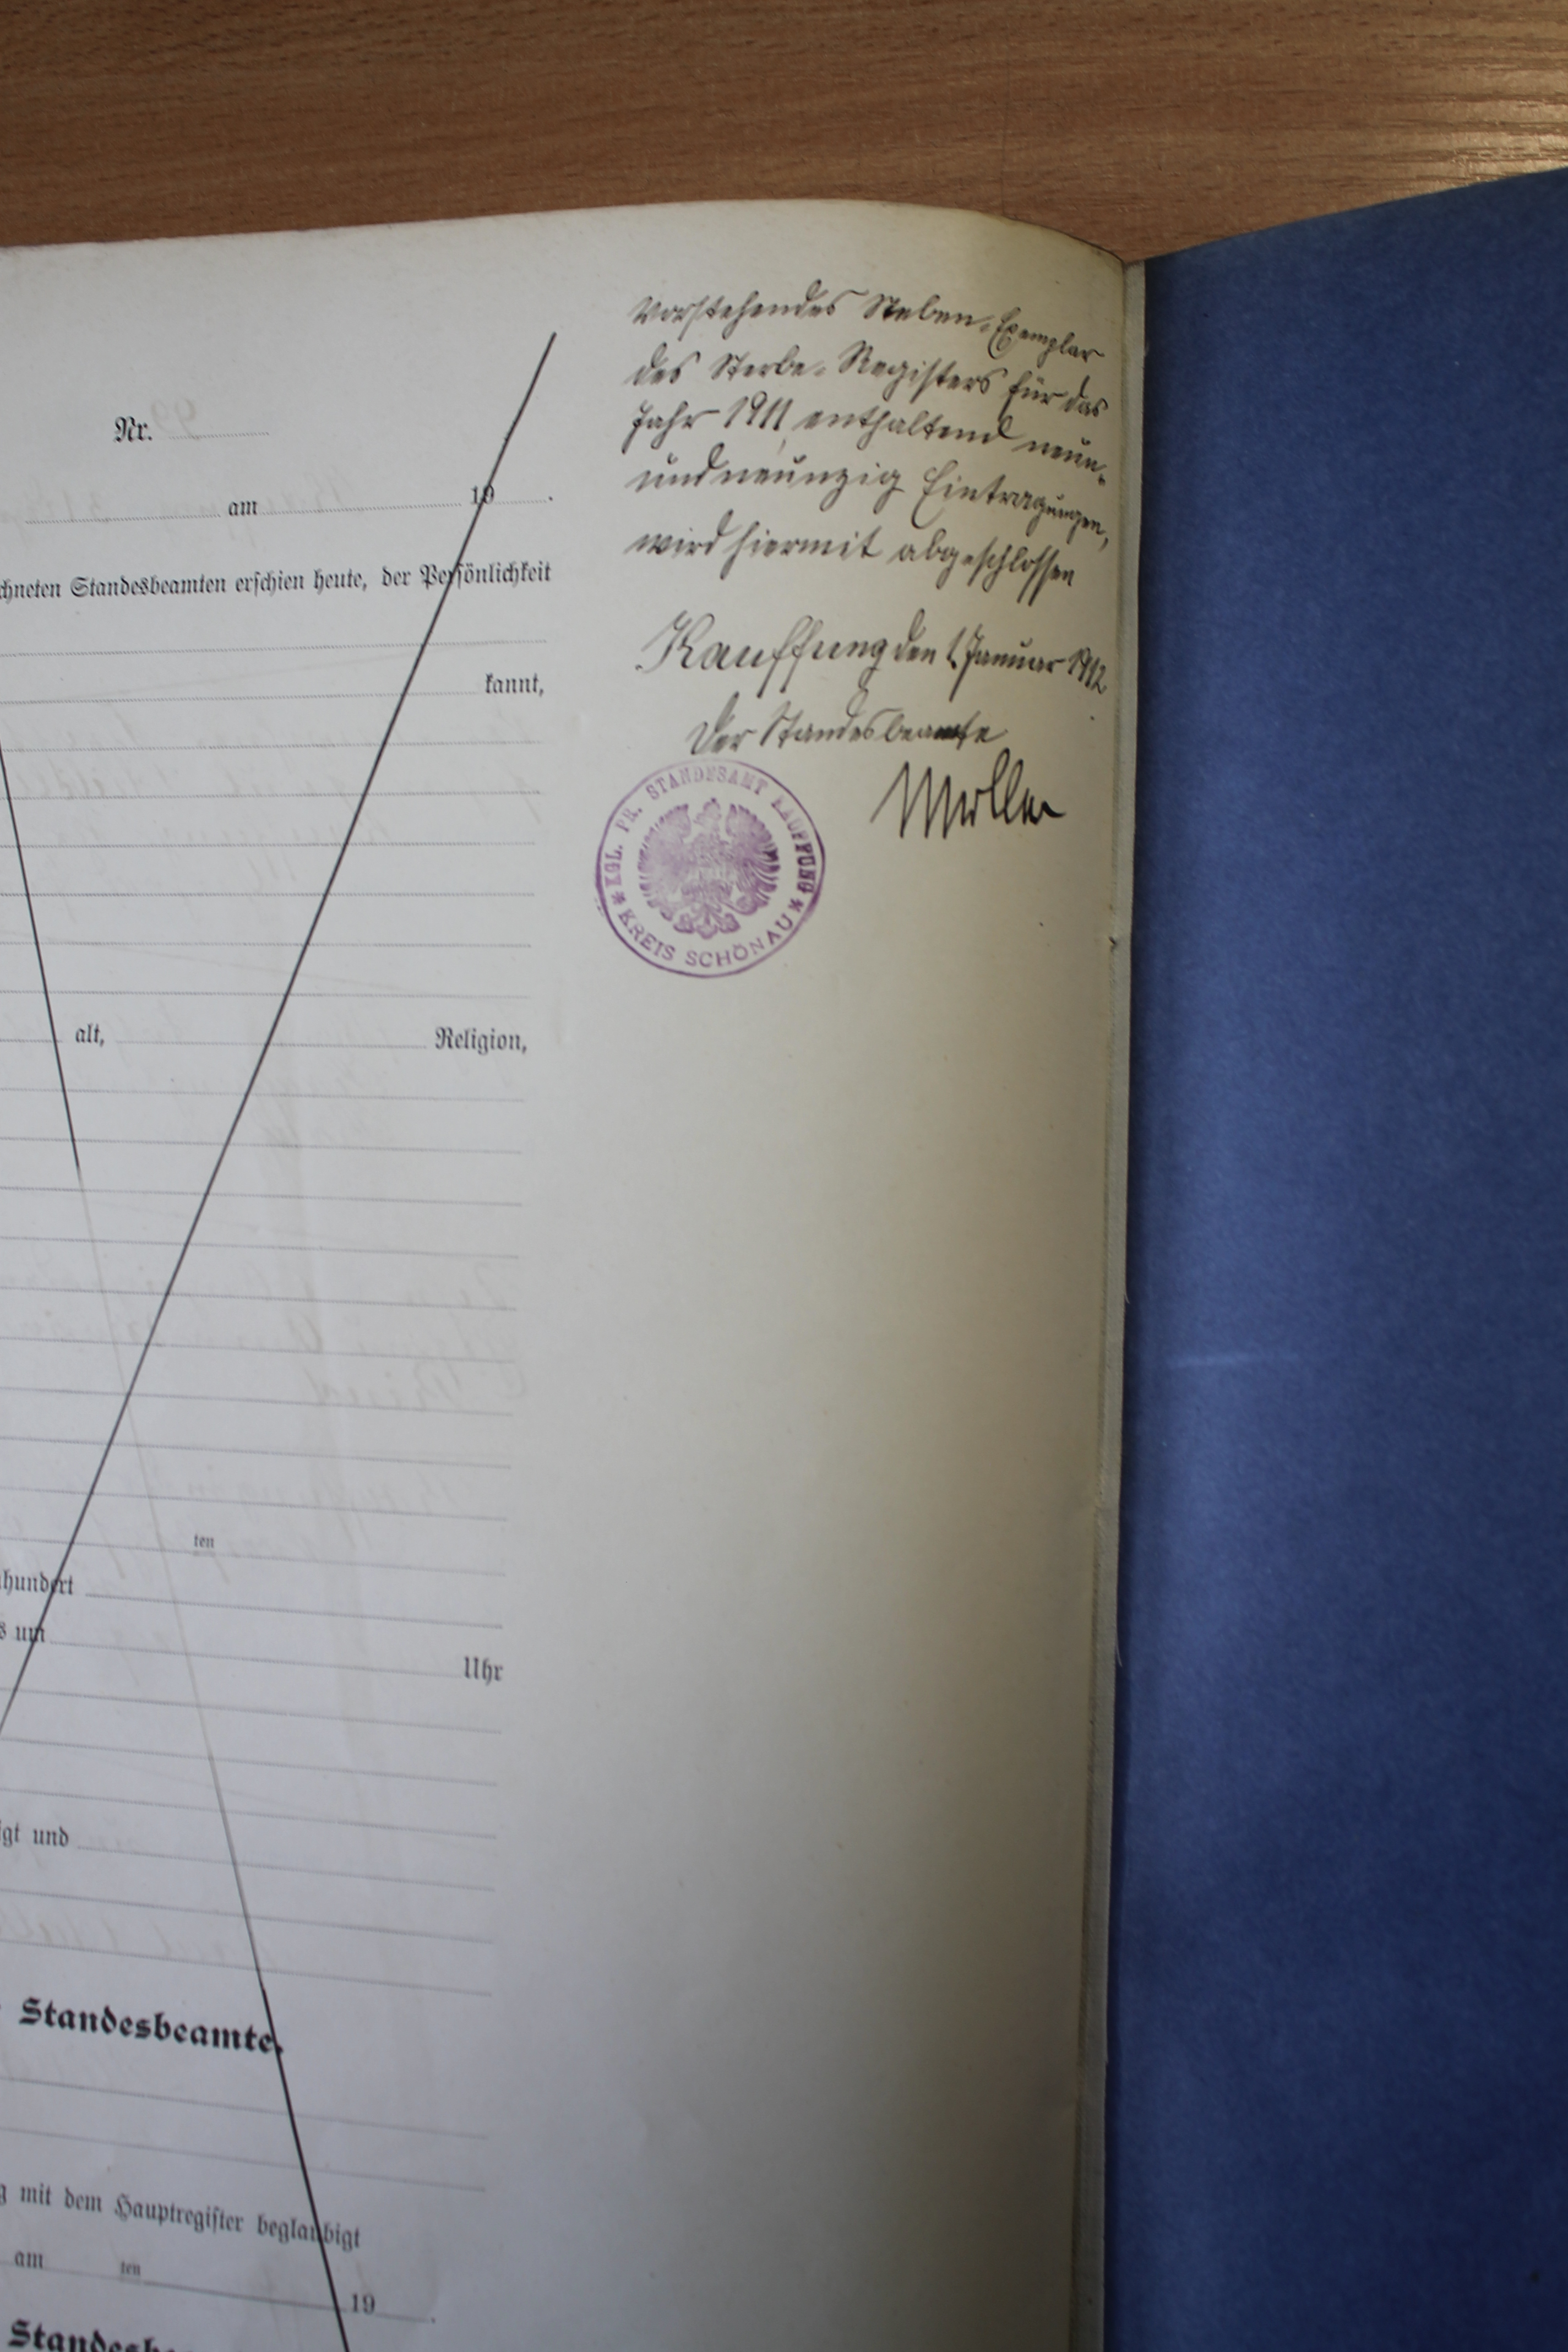 Nr.
am 19 .
chneten Standesbeamten erschien heute, der Persönlichkeit
kannt,
alt, Religion,
ten
hundert
s um
Uhr
igt und
Standesbeamte.
g mit dem Hauptregister beglaubigt
am ten 19 .
Vorstehendes Neben-Exemplar
des Sterbe-Registers für das
Jahr 1911, enthaltend neun-
undneunzig Eintragungen,
wird hiermit abgeschlossen
Kauffung den 1. Januar 1912
Der Standesbeamte
KGL. PR. STANDESAMT KAUFFUNG
* KREIS SCHÖNAU *